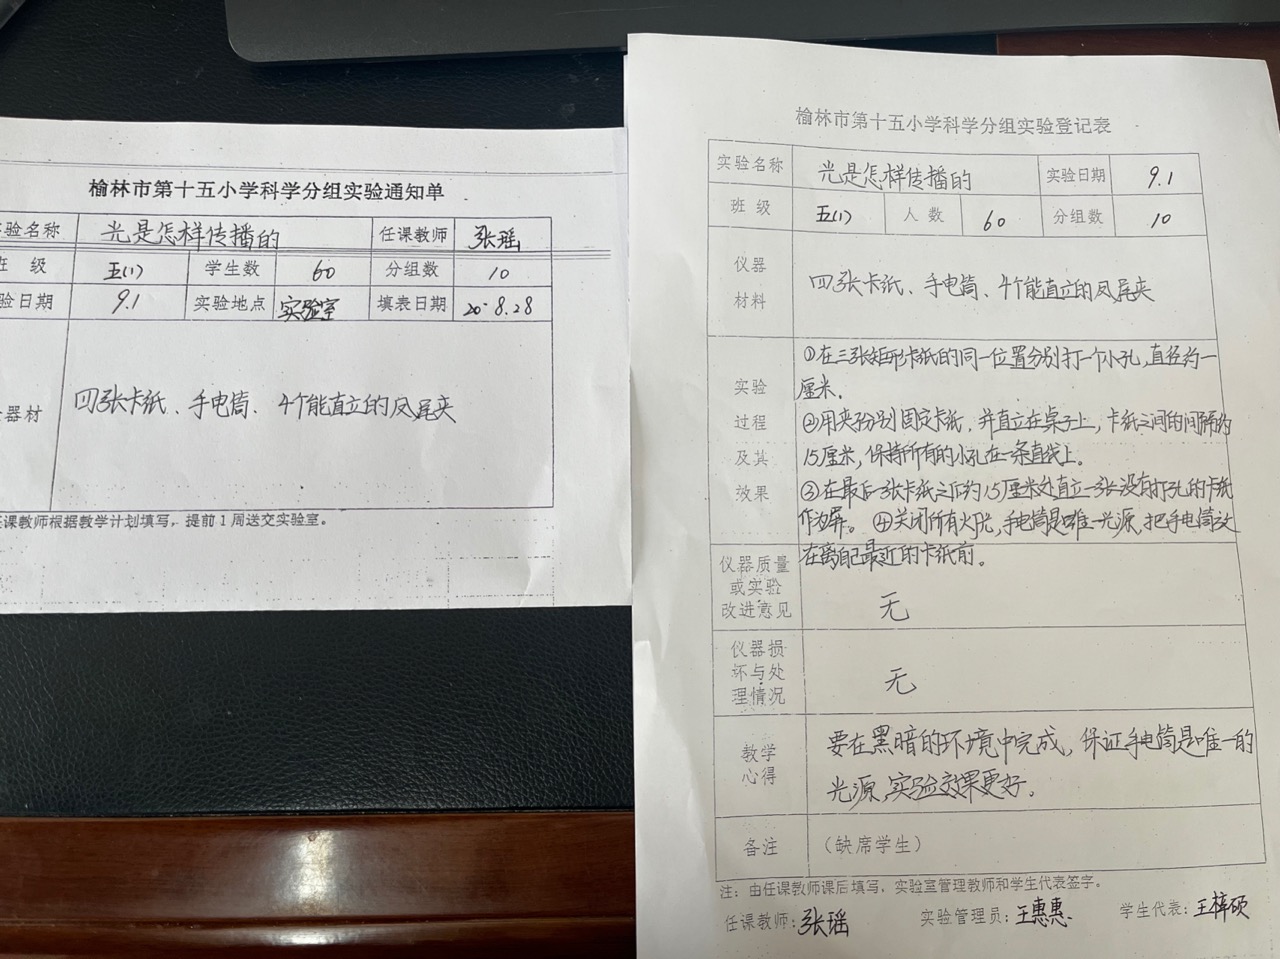 榆林市第十五小学科学分组实验通知单
验名称 光是怎样传播的 任课教师 张瑶
级 五(1) 学生数 60 分组数 10
验日期 9.1 实验地点 实验室 填表日期 20·8.28
器材 四张卡纸、手电筒、4个能直立的凤尾夹
任课教师根据教学计划填写，提前1周送交实验室。
榆林市第十五小学科学分组实验登记表
实验名称 光是怎样传播的 实验日期 9.1
班 级 五(1) 人 数 60 分组数 10
仪器
材料
四张卡纸、手电筒、4个能直立的凤尾夹
实验
过程
及其
效果
①在三张矩形卡纸的同一位置分别打一个小孔,直径约一
厘米.
②用夹子分别固定卡纸，并直立在桌子上，卡纸之间的间隔约
15厘米,保持所有的小孔在一条直线上。
③在最后一张卡纸之后约15厘米处直立一张没有打孔的卡纸
作为屏。 ④关闭所有灯光,手电筒是唯一光源,把手电筒放
在离自己最近的卡纸前。
仪器质量
或实验
改进意见
无
仪器损
坏与处
理情况
无
教学
心得
要在黑暗的环境中完成，保证手电筒是唯一的
光源,实验效果更好.
备注 （缺席学生）
注：由任课教师课后填写，实验室管理教师和学生代表签字。
任课教师:张瑶 实验管理员:王惠惠 学生代表:王梓硕